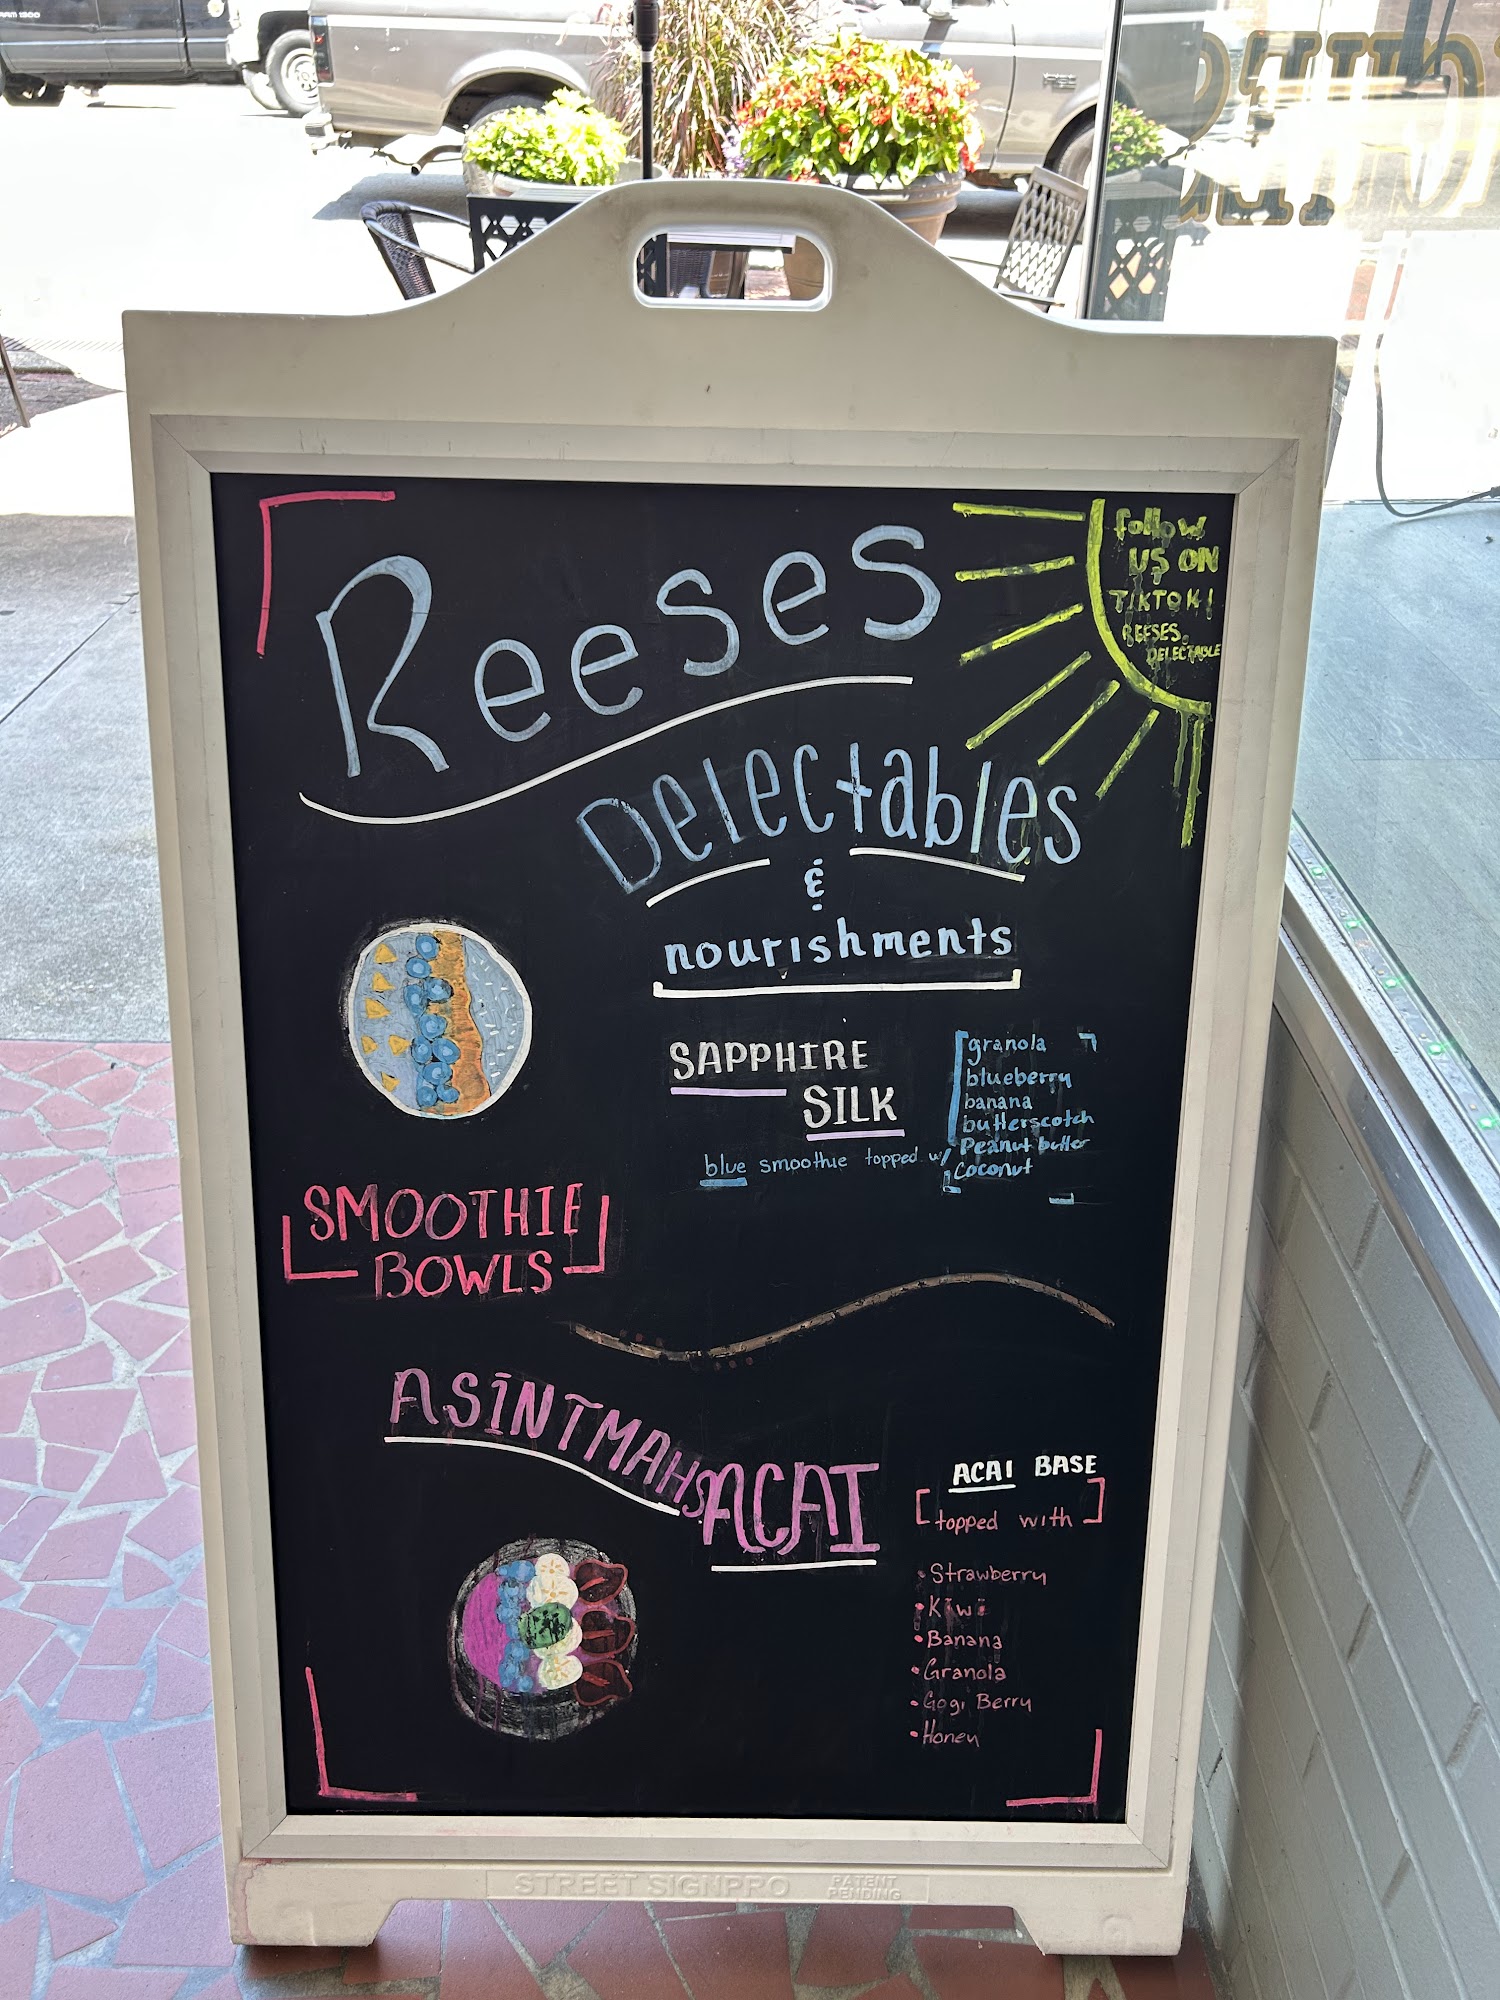 RAM 1500
follow
US ON
TIKTOK!
REESES.
DELECTABLE
Reeses
Delectables
&
nourishments
SAPPHIRE
SILK
blue smoothie topped w/
granola
blueberry
banana
butterscotch
Peanut butter
Coconut
SMOOTHIE
BOWLS
ASINTMAHS
ACAI
ACAI BASE
topped with
• Strawberry
• Kiwi
• Banana
• Granola
• Gogi Berry
• Honey
STREET SIGNPRO
PATENT
PENDING